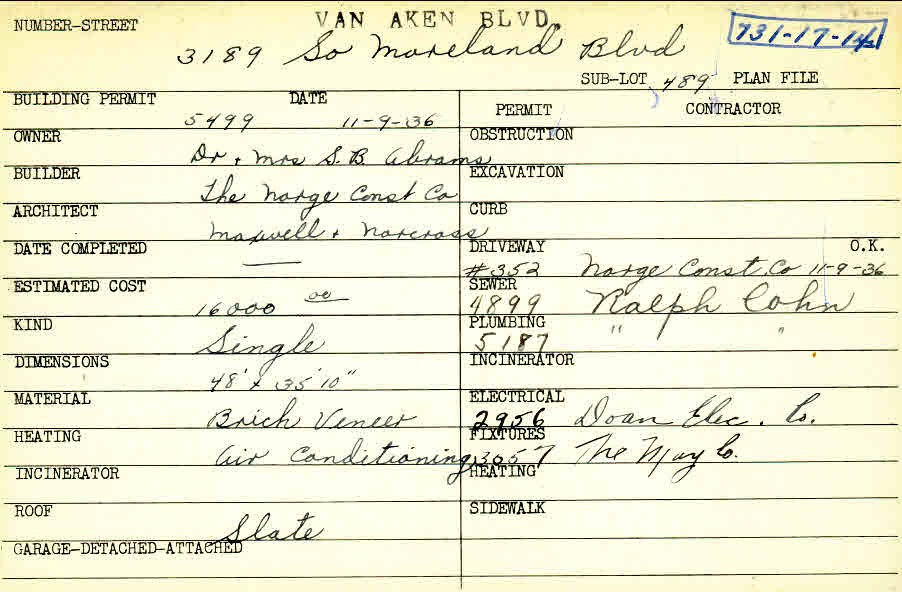 VAN AKEN BLVD.
NUMBER-STREET 3189 So Moreland Blvd
731-17-14
SUB-LOT 489 PLAN FILE
BUILDING PERMIT 5499 DATE 11-9-36
PERMIT CONTRACTOR
OWNER Dr + Mrs S. B. Abrams
OBSTRUCTION
BUILDER The Norge Const Co
EXCAVATION
ARCHITECT Maxwell + Norcross
CURB
DATE COMPLETED —
DRIVEWAY O.K.
#352 Norge Const. Co 11-9-36
ESTIMATED COST 16000 00
SEWER
4899 Ralph Cohn
KIND Single
PLUMBING
5187 " "
DIMENSIONS 48' x 35'10"
INCINERATOR
MATERIAL Brick Veneer
ELECTRICAL
2956 Doan Elec. Co.
HEATING Air Conditioning
FIXTURES
3057 The May Co.
INCINERATOR
HEATING
ROOF Slate
SIDEWALK
GARAGE-DETACHED-ATTACHED